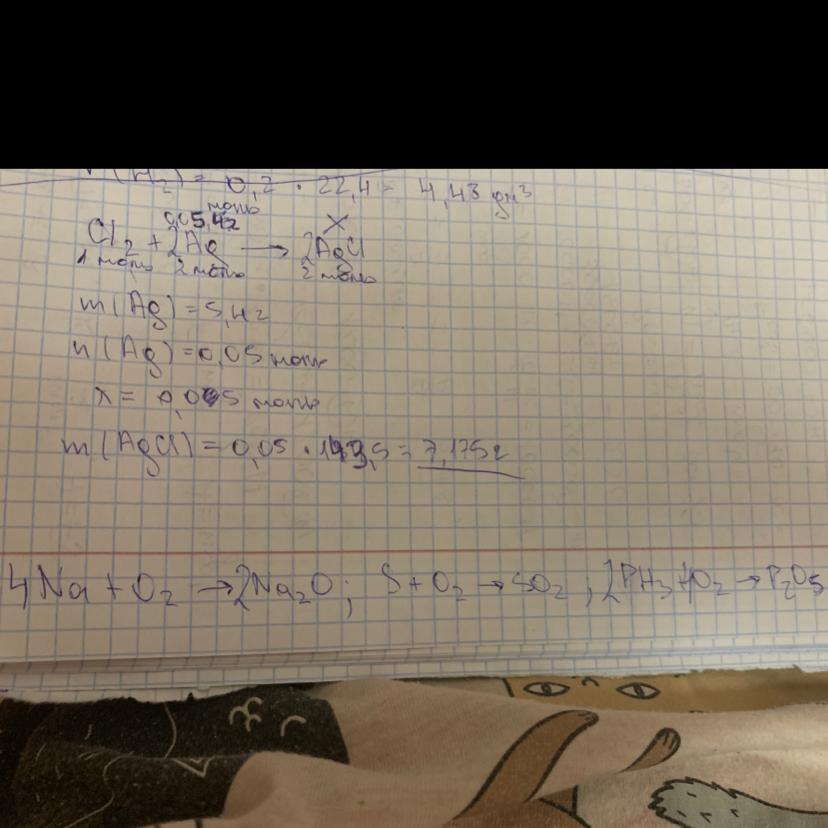 n(H₂) = 0,2 · 22,4 = 4,48 дм³
моль
0,05 5,4г X
Cl₂ + 2Ag → 2AgCl
1 моль 2 моль 2 моль
m(Ag) = 5,4г
n(Ag) = 0,05 моль
x = 0,05 моль
m(AgCl) = 0,05 · 143,5 = 7,175г
4Na + O₂ → 2Na₂O; S + O₂ → SO₂; 2PH₃ + O₂ → P₂O₅